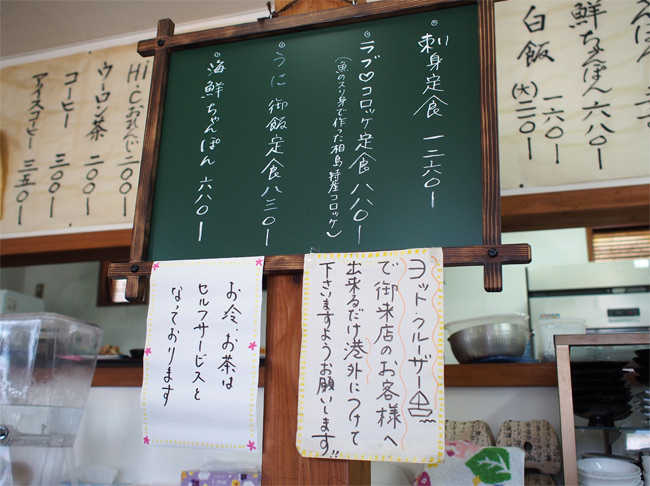 刺身定食 一二六〇ー
ラブ♡コロッケ定食 八八〇ー
(魚のスリ身で作った相島特産コロッケ)
うに御飯定食 八三〇ー
海鮮ちゃんぽん 六八〇ー
鮮ちゃんぽん 六八〇ー
白飯 一六〇ー
(大) 二〇〇ー
Hi・Cおれんじ 二〇〇ー
ウーロン茶 二〇〇ー
コーヒー 三〇〇ー
アイスコーヒー 三五〇ー
ヨット・クルーザー
で御来店のお客様へ
出来るだけ港外につけて
下さいますようお願いします!!
お冷、お茶は
セルフサービスと
なっております